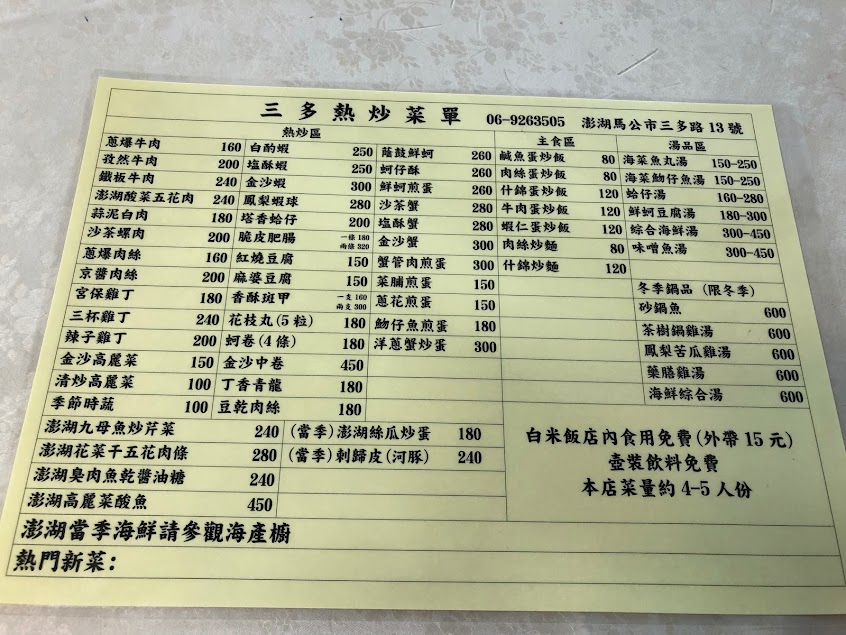 三多熱炒菜單 06-9263505 澎湖馬公市三多路13號
熱炒區
蔥爆牛肉 160
孜然牛肉 200
鐵板牛肉 240
澎湖酸菜五花肉 240
蒜泥白肉 180
沙茶螺肉 200
蔥爆肉絲 160
京醬肉絲 200
宮保雞丁 180
三杯雞丁 240
辣子雞丁 200
金沙高麗菜 150
清炒高麗菜 100
季節時蔬 100
白酌蝦 250
塩酥蝦 250
金沙蝦 300
鳳梨蝦球 280
塔香蛤仔 200
脆皮肥腸 一條180 兩條320
紅燒豆腐 150
麻婆豆腐 150
香酥斑甲 一支160 兩支300
花枝丸(5粒) 180
蚵卷(4條) 180
金沙中卷 450
丁香青龍 180
豆乾肉絲 180
蔭鼓鮮蚵 260
蚵仔酥 260
鮮蚵煎蛋 260
沙茶蟹 280
塩酥蟹 280
金沙蟹 300
蟹管肉煎蛋 300
菜脯煎蛋 150
蔥花煎蛋 150
魩仔魚煎蛋 180
洋蔥蟹炒蛋 300
主食區
鹹魚蛋炒飯 80
肉絲蛋炒飯 80
什錦蛋炒飯 120
牛肉蛋炒飯 120
蝦仁蛋炒飯 120
肉絲炒麵 80
什錦炒麵 120
湯品區
海菜魚丸湯 150-250
海菜魩仔魚湯 150-250
蛤仔湯 160-280
鮮蚵豆腐湯 180-300
綜合海鮮湯 300-450
味噌魚湯 300-450
冬季鍋品(限冬季)
砂鍋魚 600
茶樹鍋雞湯 600
鳳梨苦瓜雞湯 600
藥膳雞湯 600
海鮮綜合湯 600
澎湖九母魚炒芹菜 240
澎湖花菜干五花肉條 280
澎湖臭肉魚乾醬油糖 240
澎湖高麗菜酸魚 450
(當季)澎湖絲瓜炒蛋 180
(當季)刺歸皮(河豚) 240
白米飯店內食用免費(外帶15元)
壺裝飲料免費
本店菜量約4-5人份
澎湖當季海鮮請參觀海產櫥
熱門新菜: